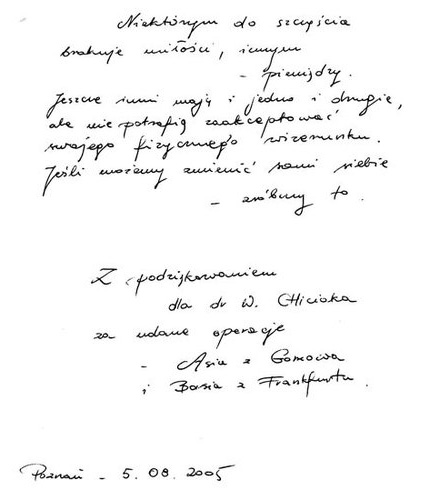 Niektórym do szczęścia
brakuje miłości, innym
- pieniędzy.
Jeszcze inni mają i jedno i drugie,
ale nie potrafią zaakceptować
swojego fizycznego wizerunku.
Jeśli możemy zmienić sami siebie
- zróbmy to.
Z podziękowaniem
dla dr W.
za udane operacje
- Asia z
i Basia z Frankfurtu.
Poznań - 5.08.2005